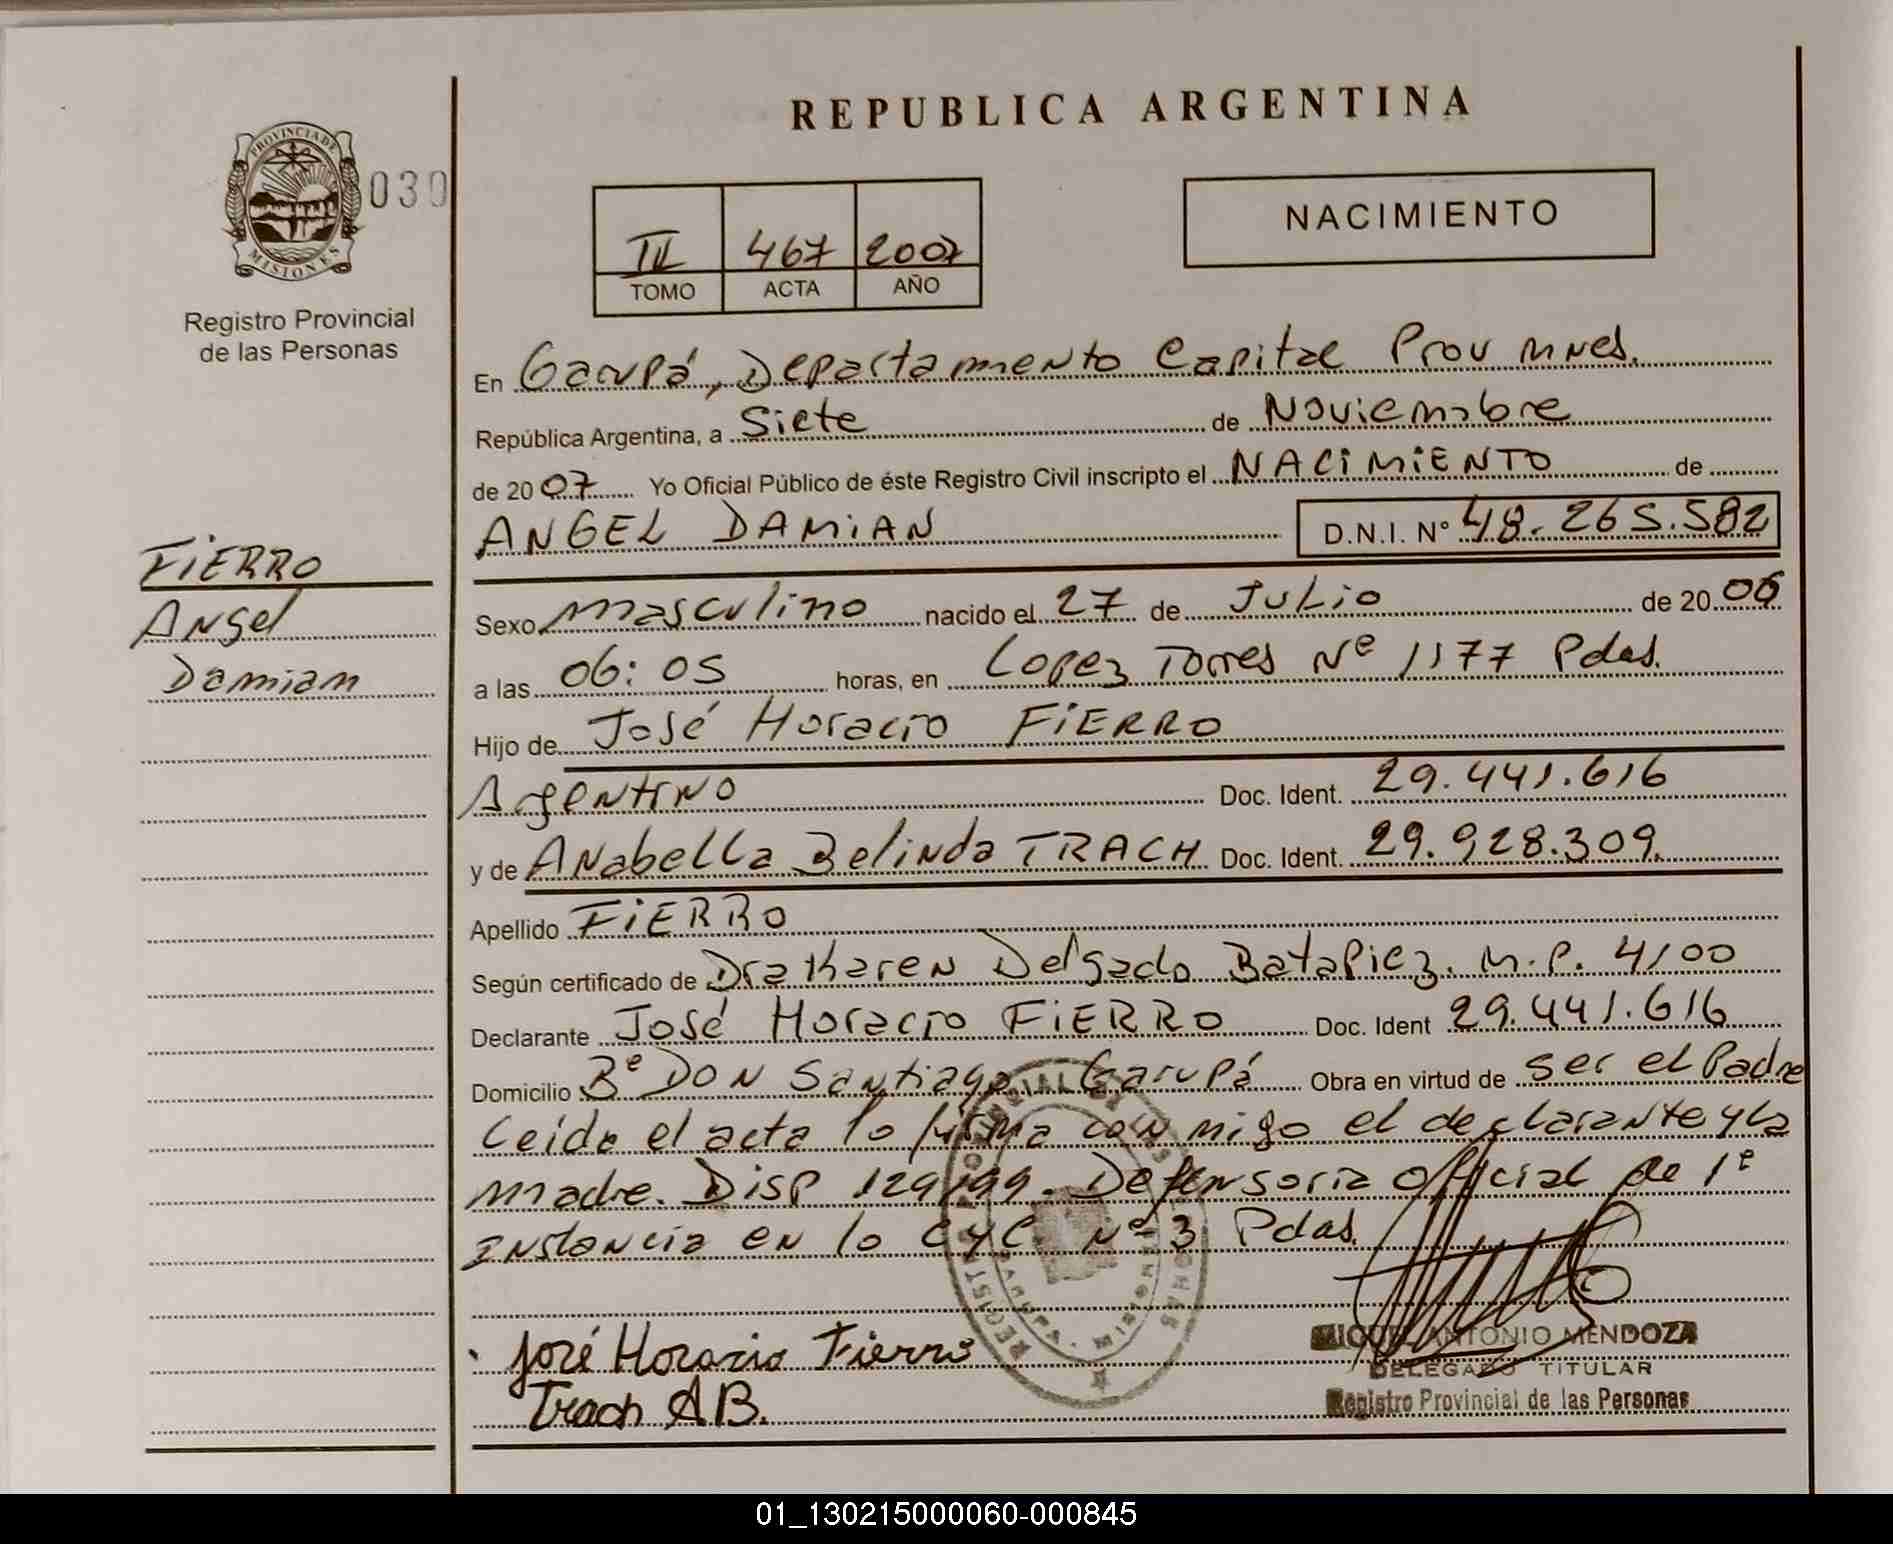 REPUBLICA ARGENTINA
PROVINCIA DE MISIONES
030
Registro Provincial
de las Personas
III 467 2007
TOMO ACTA AÑO
NACIMIENTO
En Garupá, Departamento Capital Prov Mnes.
República Argentina, a Siete de Noviembre
de 2007 Yo Oficial Público de éste Registro Civil inscripto el NACIMIENTO de
ANGEL DAMIAN D.N.I. Nº 48.265.582
FIERRO
Angel
Damian
Sexo masculino nacido el 27 de Julio de 2006
a las 06:05 horas, en Lopez Torres Nº 1177 Pdas.
Hijo de José Horacio FIERRO
Argentino Doc. Ident. 29.441.616
y de Anabella Belinda TRACH Doc. Ident. 29.928.309.
Apellido FIERRO
Según certificado de Dra Karen Delgado Batapiez. M.P. 4100
Declarante José Horacio FIERRO Doc. Ident 29.441.616
Domicilio Bº DON Santiago Garupá Obra en virtud de ser el Padre
Leída el acta lo firma con migo el declarante y la
madre. Disp 129/99. Defensoria Oficial de 1º
Instancia en lo CyC. Nº 3 Pdas.
José Horacio Fierro
Trach A.B.
MIGUEL ANTONIO MENDOZA
DELEGADO TITULAR
Registro Provincial de las Personas
01_130215000060-000845